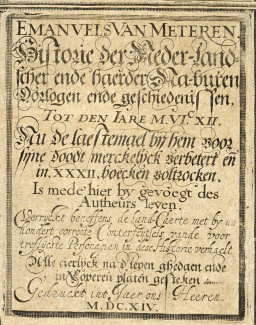 EMANVELS VAN METEREN
Historie der Neder-land-
scher ende haerder Na-buren
Oorlogen ende geschiedenissen.
TOT DEN IARE M.VI.C XII.
Nu de laestemael by hem voor
syne doodt merckelyck verbetert eñ
in .XXXII. boecken voltrocken.
Is mede hier by gevoegt des
Autheurs leven.
Verryckt beneffens de land-Caerte met by na
hondert correcte Conterfeitsels vande voor
treflicste Personagien in dese Historie verhaelt
Alle cierlyck na d leven ghedaen ende
in Coperen platen gesneden
Gedruckt int Iaer ons Heeren.
M.DC.XIV.